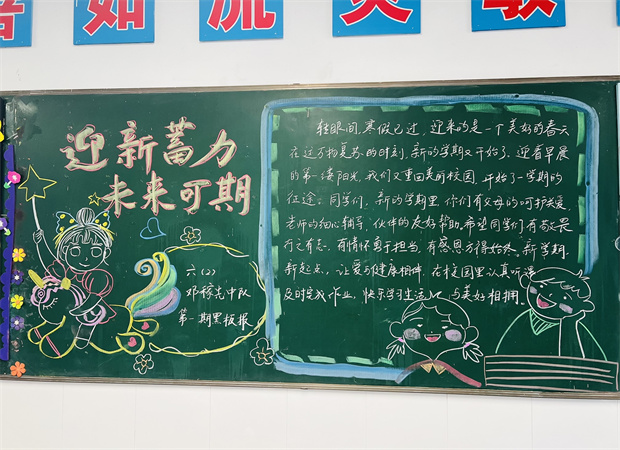 如 流 
迎新蓄力
未来可期
六(2)
邓稼先中队
第一期黑板报
转眼间,寒假已过,迎来的是一个美好的春天
在这万物复苏的时刻,新的学期又开始了,迎着早晨
的第一缕阳光,我们又重回美丽校园,开始了一学期的
征途。同学们,新的学期里,你们有父母的呵护关爱,
老师的细心辅导,伙伴的友好帮助,希望同学们有敬畏
行之有志,有情怀勇于担当,有感恩方得始终。新学期,
新起点,让爱与健康相伴,在校园里认真听课
及时完成作业,快乐学习生活,与美好相拥。